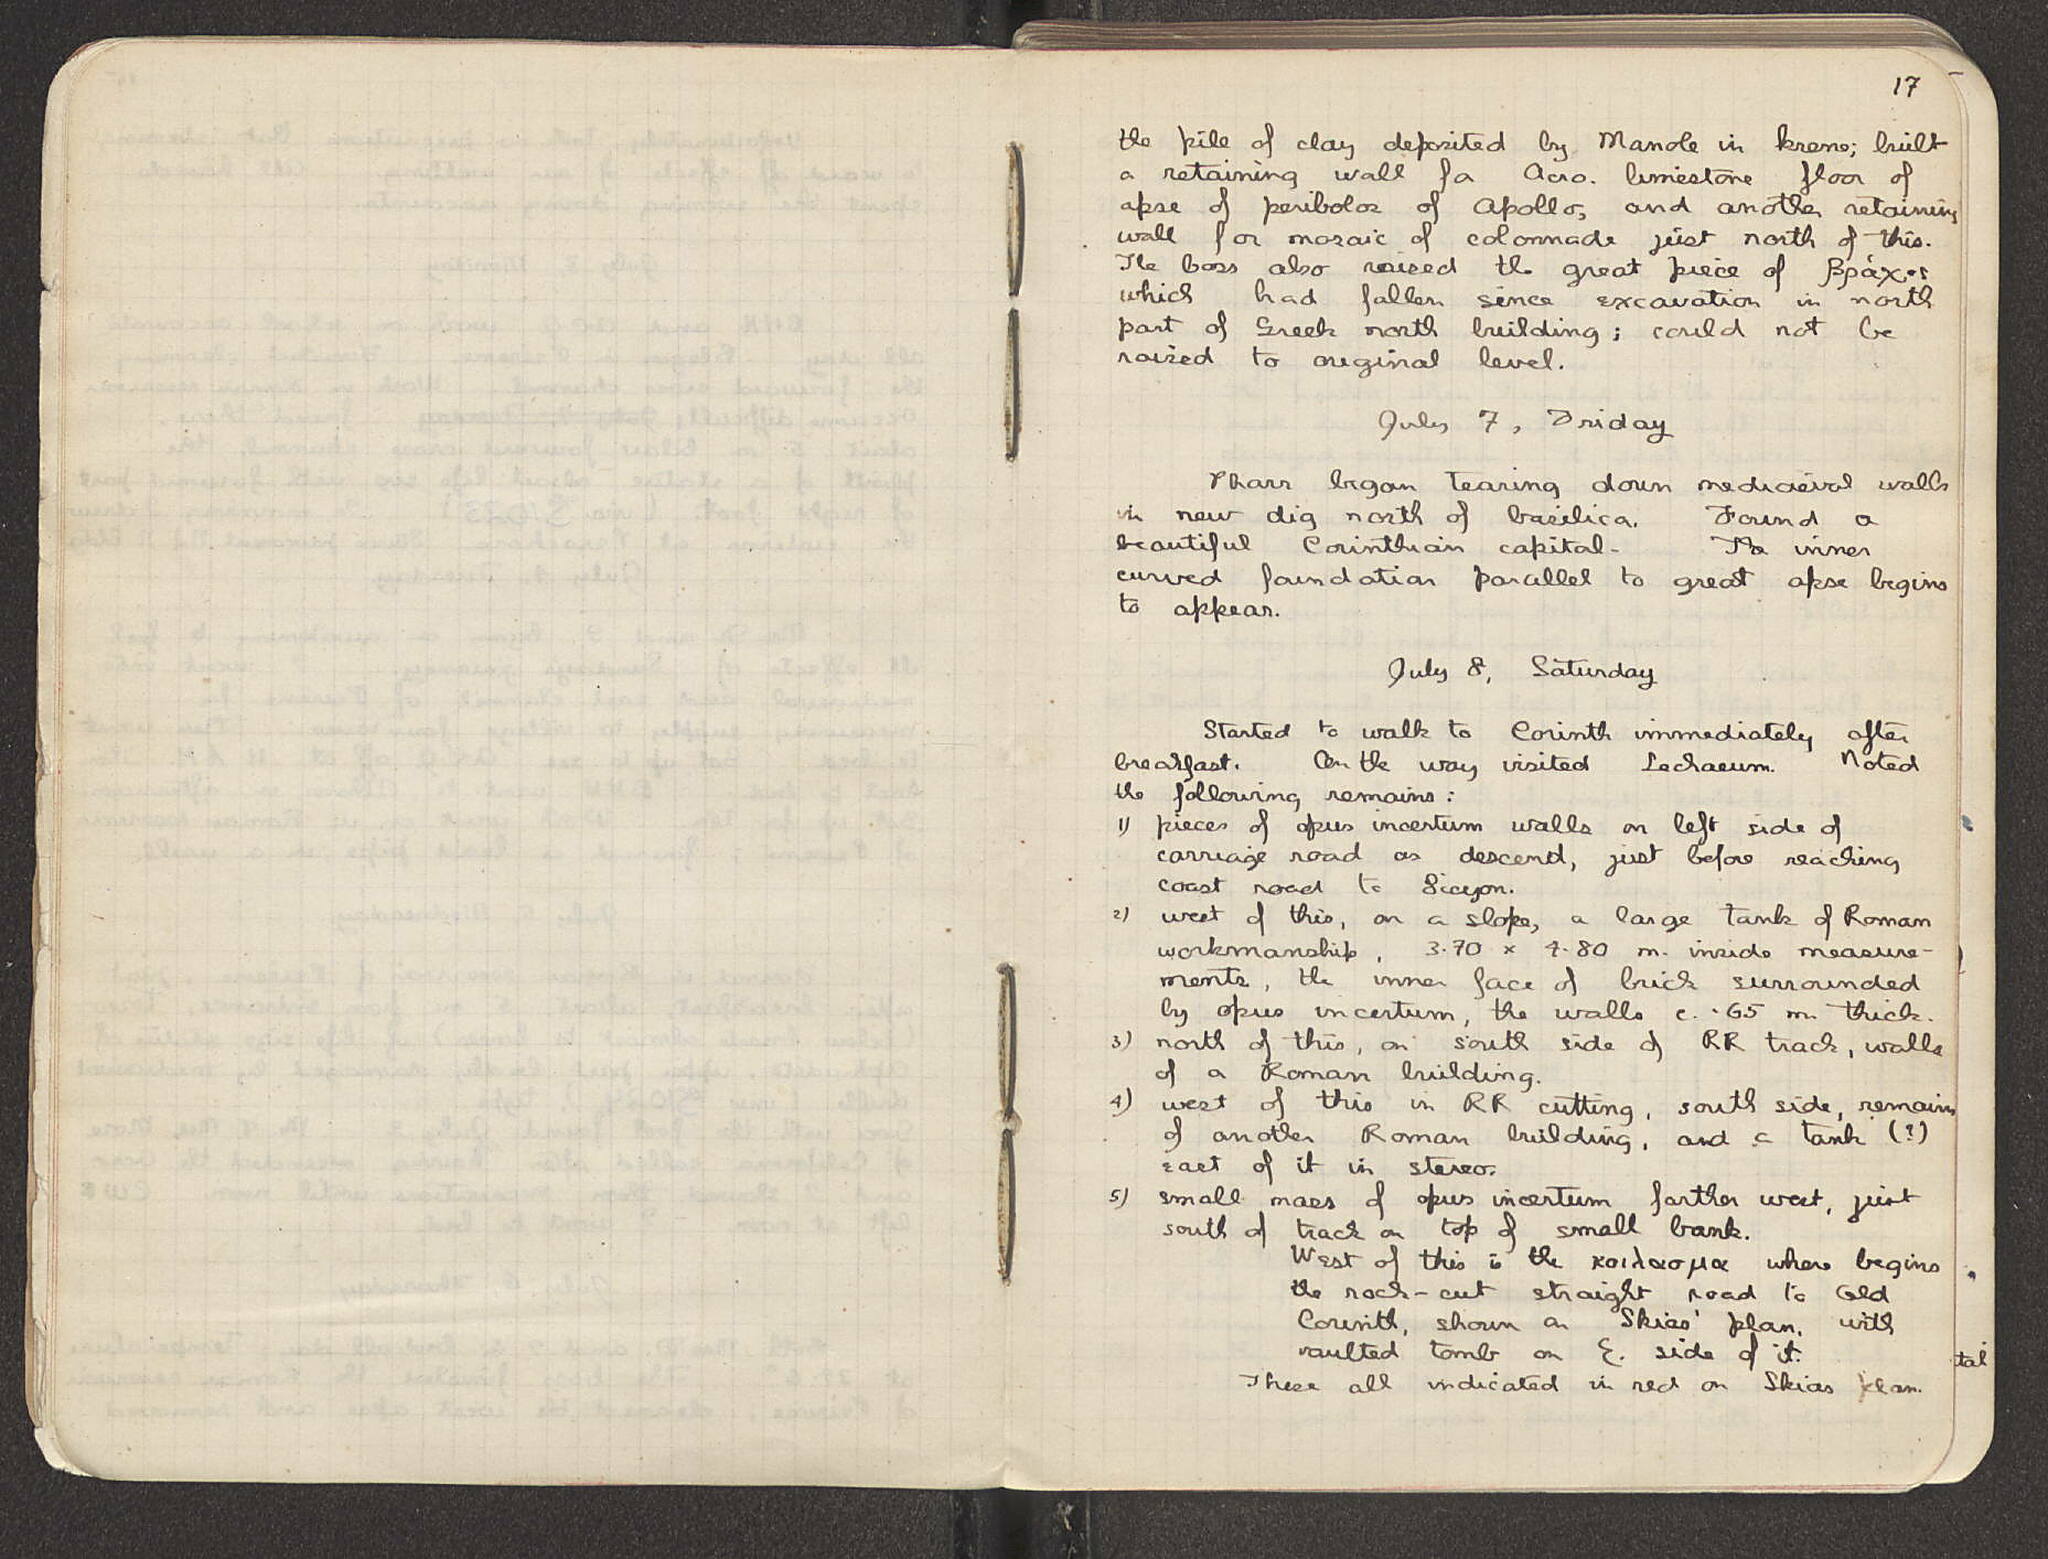 17
the pile of clay deposited by Manole in krene; built
a retaining wall fo Acro. limestone floor of
apse of peribolos of Apollo, and another retaining
wall for mosaic of colonnade just north of this.
The boss also raised the great piece of βράχος
which had fallen since excavation in north
part of Greek north building; could not be
raised to original level.
July 7, Friday
Pharr began tearing down mediaeval walls
in new dig north of basilica. Found a
beautiful Corinthian capital. The inner
curved foundation parallel to great apse begins
to appear.
July 8, Saturday
Started to walk to Corinth immediately after
breakfast. On the way visited Lechaeum. Noted
the following remains:
1) pieces of opus incertum walls on left side of
carriage road as descend, just before reaching
coast road to Sicyon.
2) west of this, on a slope, a large tank of Roman
workmanship, 3.70 × 4.80 m. inside measure-
ments, the inner face of brick surrounded
by opus incertum, the walls c. .65 m. thick.
3) north of this, on south side of RR track, walls
of a Roman building.
4) west of this in RR cutting, south side, remains
of another Roman building, and a tank (?)
east of it in stereo.
5) small mass of opus incertum farther west, just
south of track on top of small bank.
West of this is the κοιλασμα where begins
the rock-cut straight road to Old
Corinth, shown on Skias' plan, with
vaulted tomb on E. side of it.
These all indicated in red on Skias plan.
tal